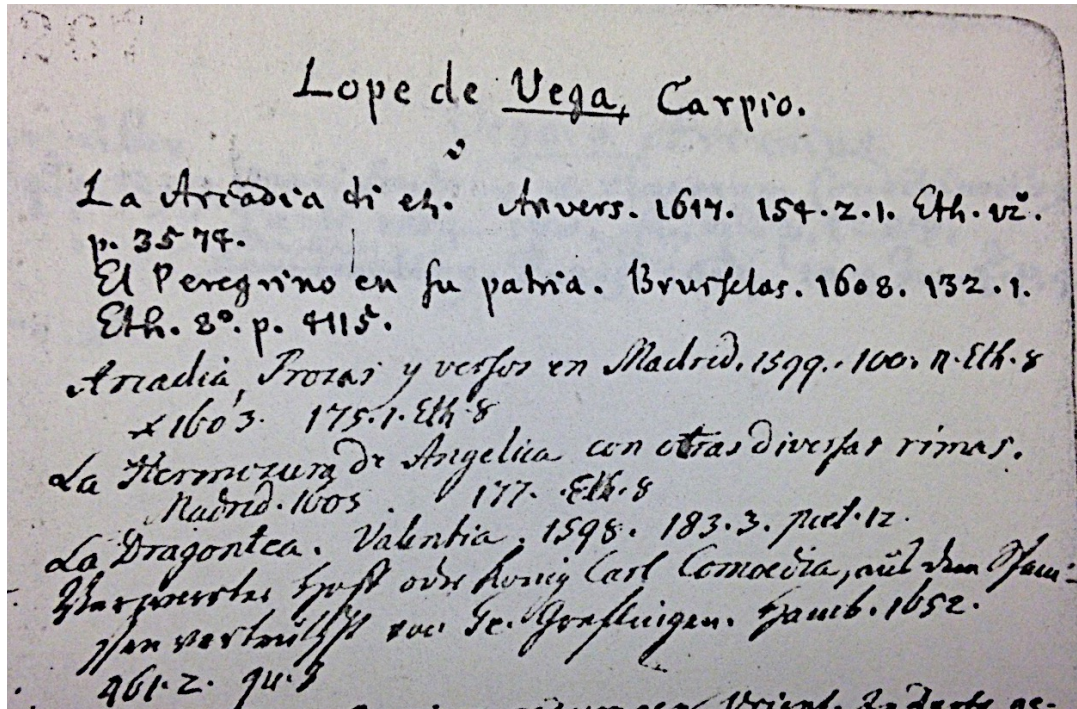 Lope de Vega, Carpio.
La Arcadia di eh. Anvers. 1617. 154.2.1. Eth. 12º.
p. 3574.
El Peregrino en su patria. Brusselas. 1608. 132.1.
Eth. 8º. p. 4115.
Arcadia, Prozas y versos en Madrid. 1599. 100. Eth. 8
1603. 175.1. Eth. 8
La Hermozura de Angelica con otras diversas rimas.
Madrid. 1605 177. Eth. 8
La Dragontea. Valentia. 1598. 183.3. poet. 12.
Verwirrter Hoff oder König Carl Comoedia, auß dem Spani-
schen von Ge. Greflingen. Hamb. 1652.
461.2. qu. 9
Orient